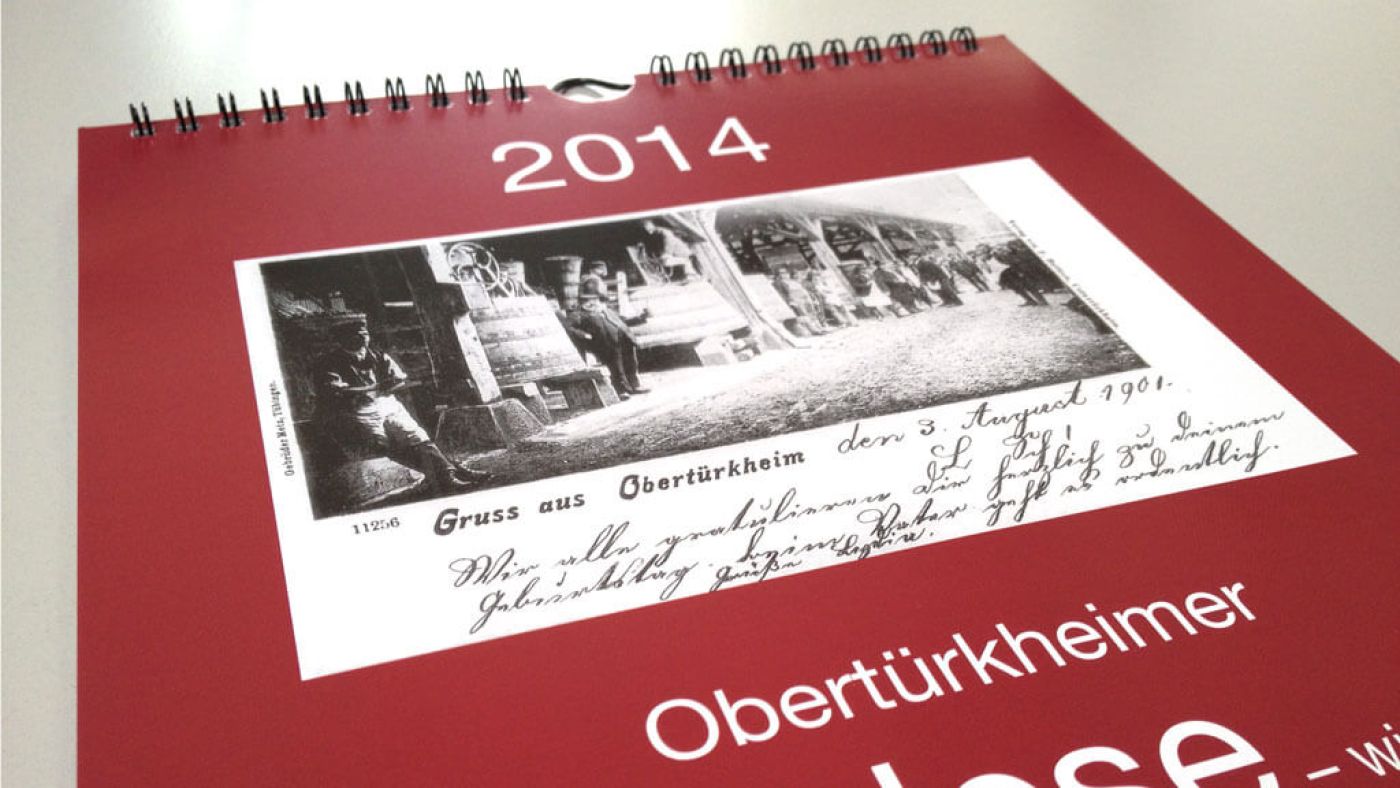 2014
Gebrüder Metz, Tübingen.
11256
Gruss aus Obertürkheim
den 3. August 1901.
L Sch!
Wir alle gratulieren Dir herzlich zu deinem
Geburtstag. beim Vater geht es ordentlich.
Grüße
Obertürkheimer
lese – wi